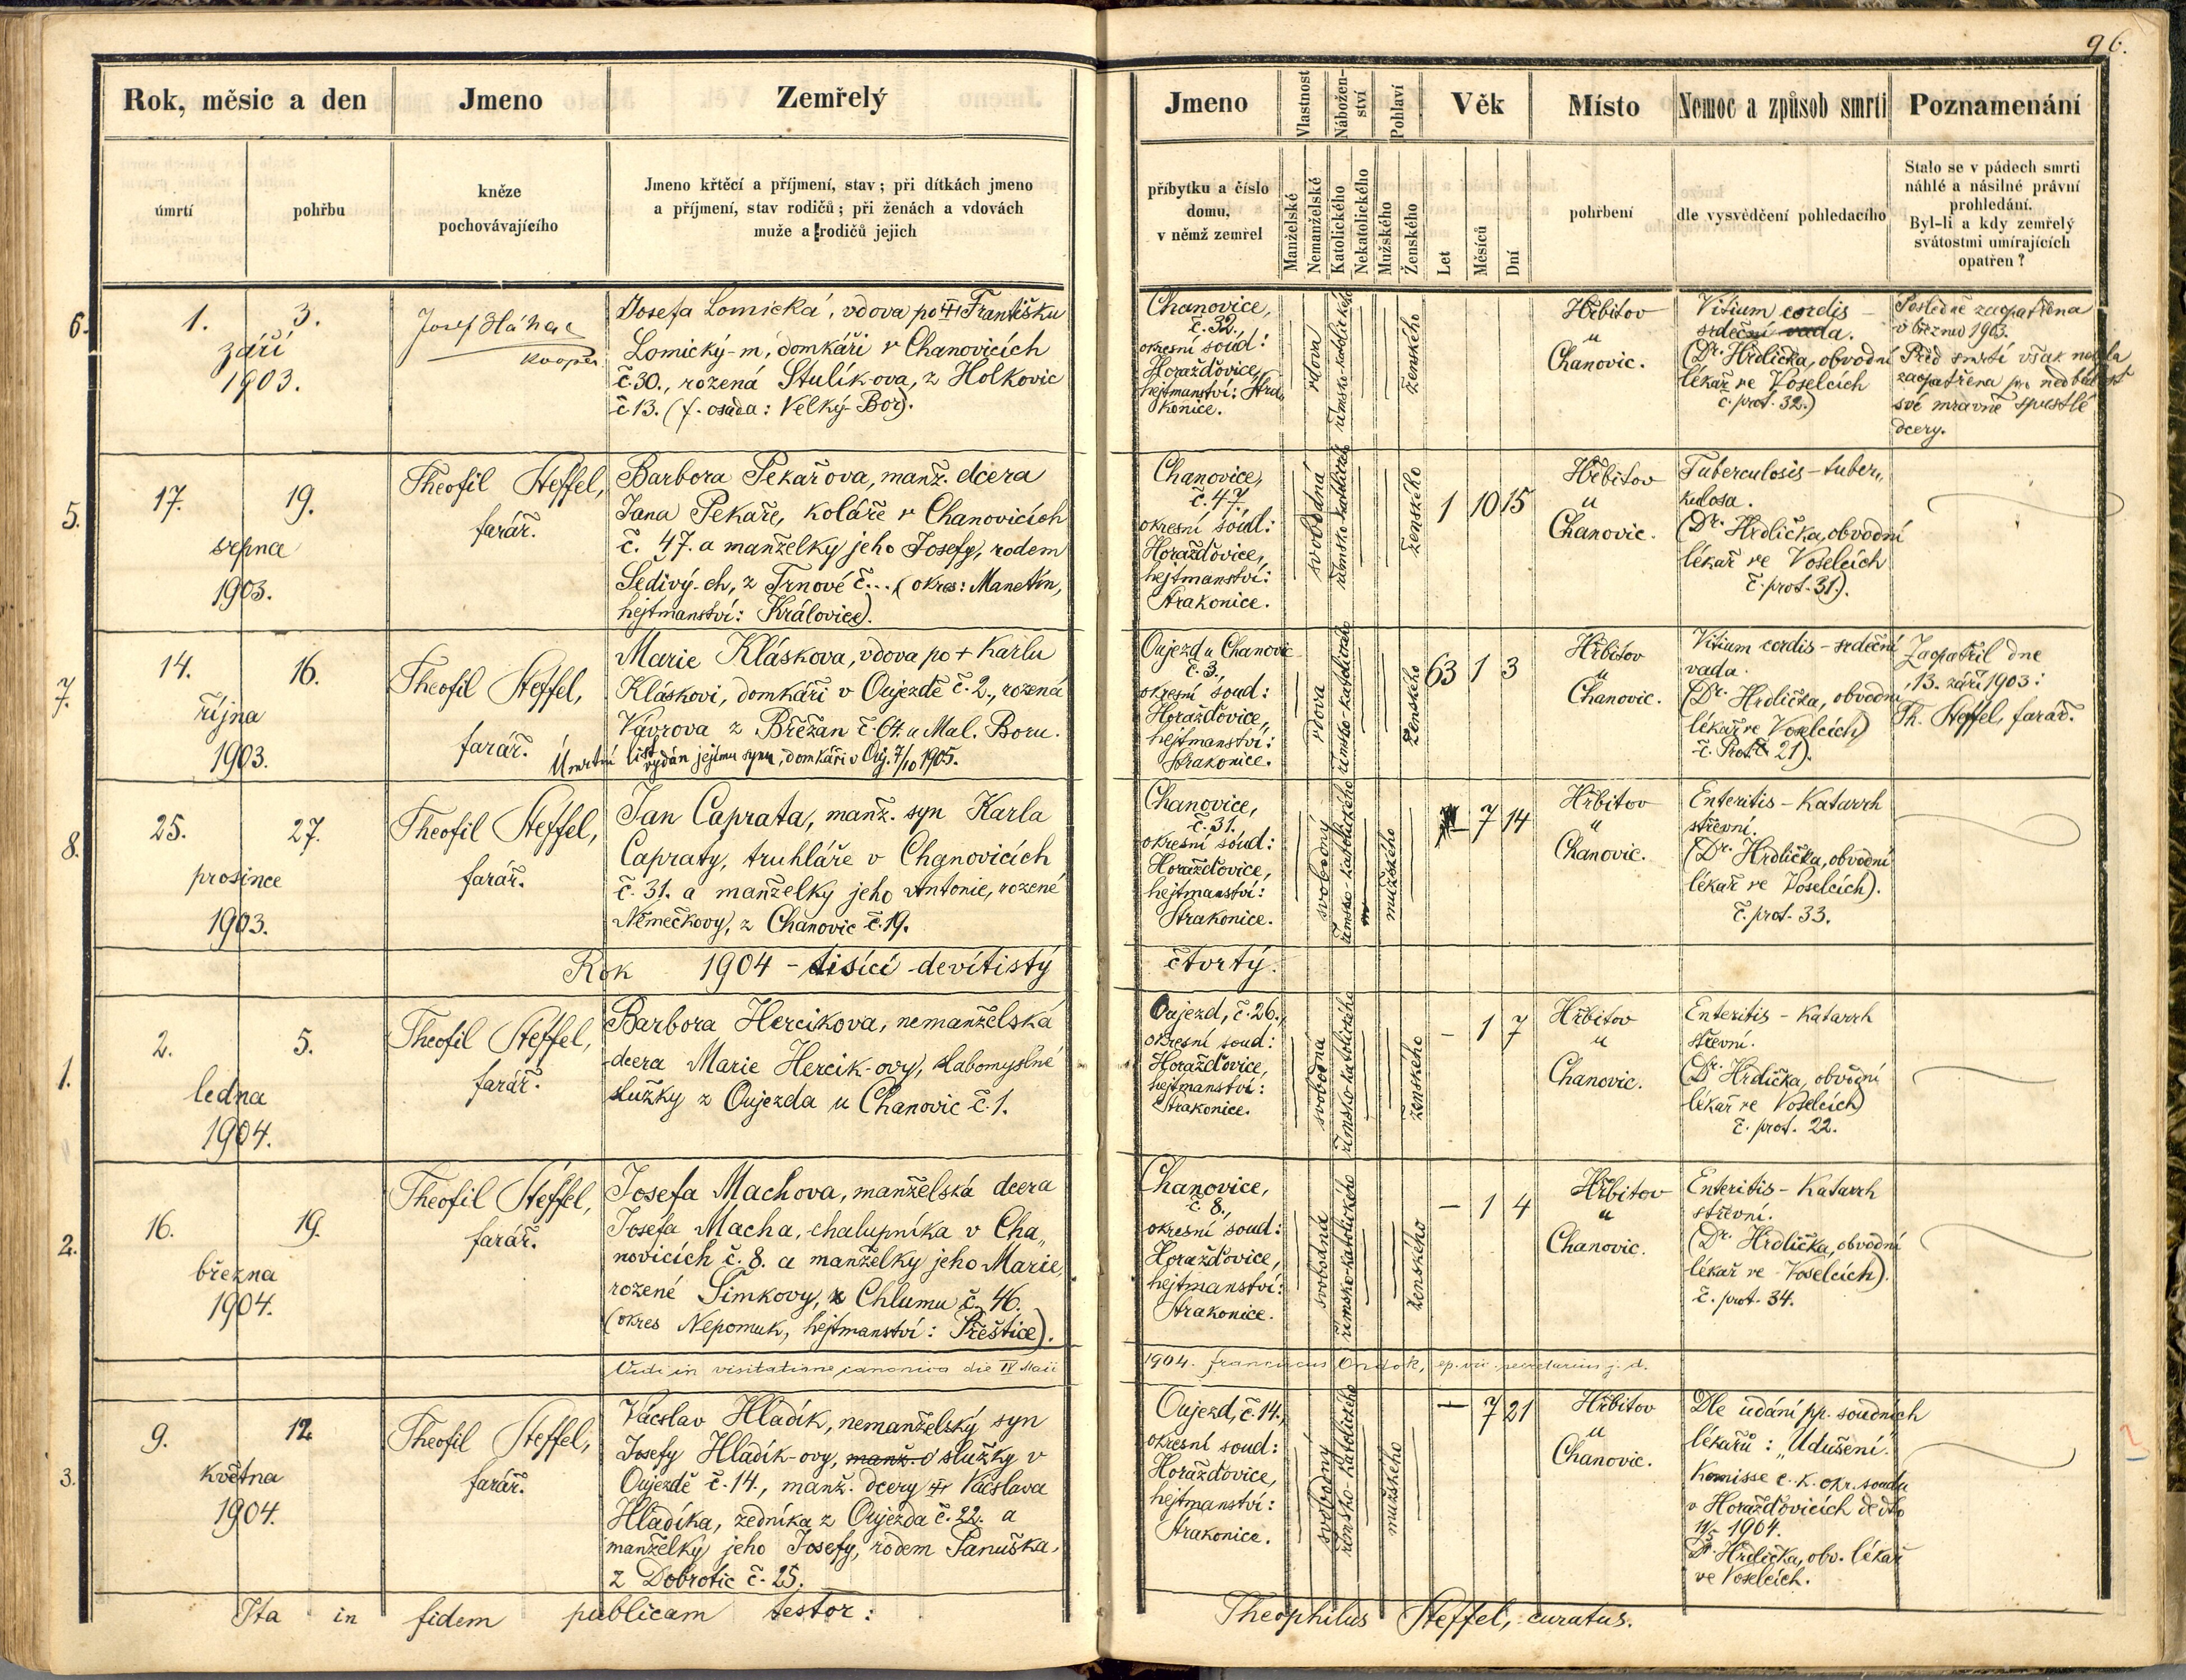 96.
Rok, měsic a den
Jmeno
Zemřelý
úmrtí
pohřbu
kněze
pochovávajícího
Jmeno křtěcí a příjmení, stav; při dítkách jmeno
a příjmení, stav rodičů; při ženách a vdovách
muže a rodičů jejich
Jmeno
Vlastnost
Nábožen-
ství
Pohlaví
Věk
Místo
Nemoc a způsob smrti
Poznamenání
příbytku a číslo
domu,
v němž zemřel
Manželské
Nemanželské
Katolického
Nekatolického
Mužského
Ženského
Let
Měsíců
Dní
pohrbení
dle vysvědčení pohledacího
Stalo se v pádech smrti
náhlé a násilné právní
prohledání.
Byl-li a kdy zemřelý
svátostmi umírajících
opatřen?
6.
1. 3.
září
1903.
Josef
kooper.
Josefa Lomická, vdova po Františku
Lomický-m, domkáři v Chanovicích
č. 30., rozená Stulíkova, z Holkovic
č. 13. (f. osada: Velký-Bor).
Chanovice,
č. 32.,
okresní soud:
Horažďovice,
hejtmanství: Stra„
konice.
vdova
římsko-katolického
ženského
Hřbitov
u
Chanovic.
Vitium cordis –
srdeční vada.
(Dr. Hrdlička, obvodní
lékař ve Voselcích
č. prot. 32.)
Posledně zaopatřena
v březnu 1903.
Před smrtí však nebyla
zaopatřena pro nedbalost
své mravně spustlé
dcery.
5.
17. 19.
srpna
1903.
Theofil Steffel,
farář.
Barbora Pekařova, manž. dcera
Jana Pekaře, koláře v Chanovicích
č. 47. a manželky jeho Josefy, rodem
Šedivý-ch, z Trnové č... (okres: Manetín,
hejtmanství: Královice).
Chanovice,
č. 47.
okresní soud:
Horažďovice,
hejtmanství:
Strakonice.
svobodná
římsko-katolického
ženského
1 10 15
Hřbitov
u
Chanovic.
Tuberculosis – tuber„
kulosa.
(Dr. Hrdlička, obvodní
lékař ve Voselcích
č. prot. 31).
7.
14. 16.
října
1903.
Theofil Steffel,
farář.
Marie Kláskova, vdova po + Karlu
Kláskovi, domkáři v Oujezdě č. 2., rozená
Vávrova z Břežan č. 64. u Mal. Boru.
Úmrtní list vydán jejímu synu, domkáři v Ouj. 7/10 1905.
Oujezd u Chanovic
č. 3.,
okresní soud:
Horažďovice,
hejtmanství:
Strakonice.
vdova
římsko-katolického
ženského
63 1 3
Hřbitov
u
Chanovic.
Vitium cordis – srdeční
vada.
(Dr. Hrdlička, obvodní
lékař ve Voselcích)
č. Prot. 21).
Zaopatřil dne
13. září 1903:
Th. Steffel, farář.
8.
25. 27.
prosince
1903.
Theofil Steffel,
farář.
Jan Caprata, manž. syn Karla
Capraty, truhláře v Chanovicích
č. 31. a manželky jeho Antonie, rozené
Němečkovy, z Chanovic č. 19.
Chanovice,
č. 31.
okresní soud:
Horažďovice,
hejtmanství:
Strakonice.
svobodný
římsko-katolického
mužského
– 7 14
Hřbitov
u
Chanovic.
Enteritis – Katarrh
střevní.
(Dr. Hrdlička, obvodní
lékař ve Voselcích).
č. prot. 33.
Rok 1904 – tisící devítistý čtvrtý.
1.
2. 5.
ledna
1904.
Theofil Steffel,
farář.
Barbora Hercikova, nemanželská
dcera Marie Hercik-ovy, slabomyslné
služky z Oujezda u Chanovic č. 1.
Oujezd, č. 26.,
okresní soud:
Horažďovice,
hejtmanství:
Strakonice.
svobodná
římsko-katolického
ženského
– 1 7
Hřbitov
u
Chanovic.
Enteritis – Katarrh
střevní.
(Dr. Hrdlička, obvodní
lékař ve Voselcích)
č. prot. 22.
2.
16. 19.
března
1904.
Theofil Steffel,
farář.
Josefa Machova, manželská dcera
Josefa Macha, chalupníka v Cha„
novicích č. 8. a manželky jeho Marie,
rozené Šimkovy, z Chlumu č. 46.
(okres Nepomuk, hejtmanství: Přeštice).
Chanovice,
č. 8.,
okresní soud:
Horažďovice,
hejtmanství:
Strakonice.
svobodná
římsko-katolického
ženského
– 1 4
Hřbitov
u
Chanovic.
Enteritis – Katarrh
střevní.
(Dr. Hrdlička, obvodní
lékař ve Voselcích).
č. prot. 34.
Vidi in visitatione canonica die IV Maii 1904. Franciscus Ondok, ep. vic. secretarius j. d.
3.
9. 12.
května
1904.
Theofil Steffel,
farář.
Václav Hladík, nemanželský syn
Josefy Hladík-ovy, manž. d služky v
Oujezdě č. 14., manž. dcery Václava
Hladíka, zedníka z Oujezda č. 22. a
manželky jeho Josefy, rodem Panuška,
z Dobrotic č. 25.
Oujezd, č. 14.,
okresní soud:
Horažďovice,
hejtmanství:
Strakonice.
svobodný
římsko-katolického
mužského
– 7 21
Hřbitov
u
Chanovic.
Dle udání pp. soudních
lékařů: „Udušení."
Komisse c. k. okr. soudu
v Horažďovicích de dto
11/5 1904.
Dr. Hrdlička, obv. lékař
ve Voselcích.
Ita in fidem publicam testor: Theophilus Steffel, curatus.